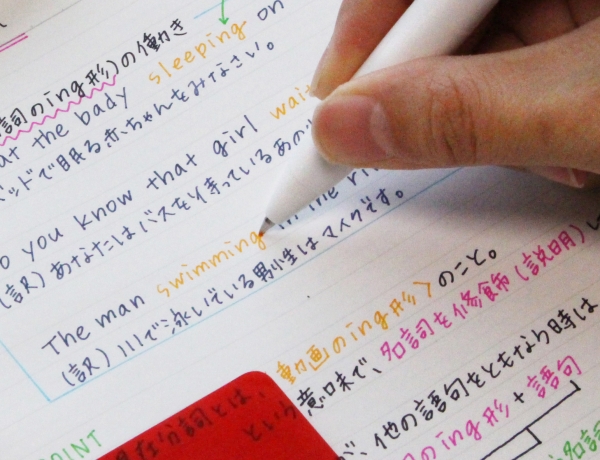 詞のing形)の働き
at the bady sleeping on
ッドで眠る赤ちゃんをみなさい。
you know that girl wait
(訳) あなたはバスを待っているあの
The man swimming in the ri
(訳) 川で泳いでいる男性はマイクです。
動画のing形〉のこと。
意味で、名詞を修飾(説明)し
が、他の語句をともなり時は
のing形+語句
現在分詞とは、
という
OINT